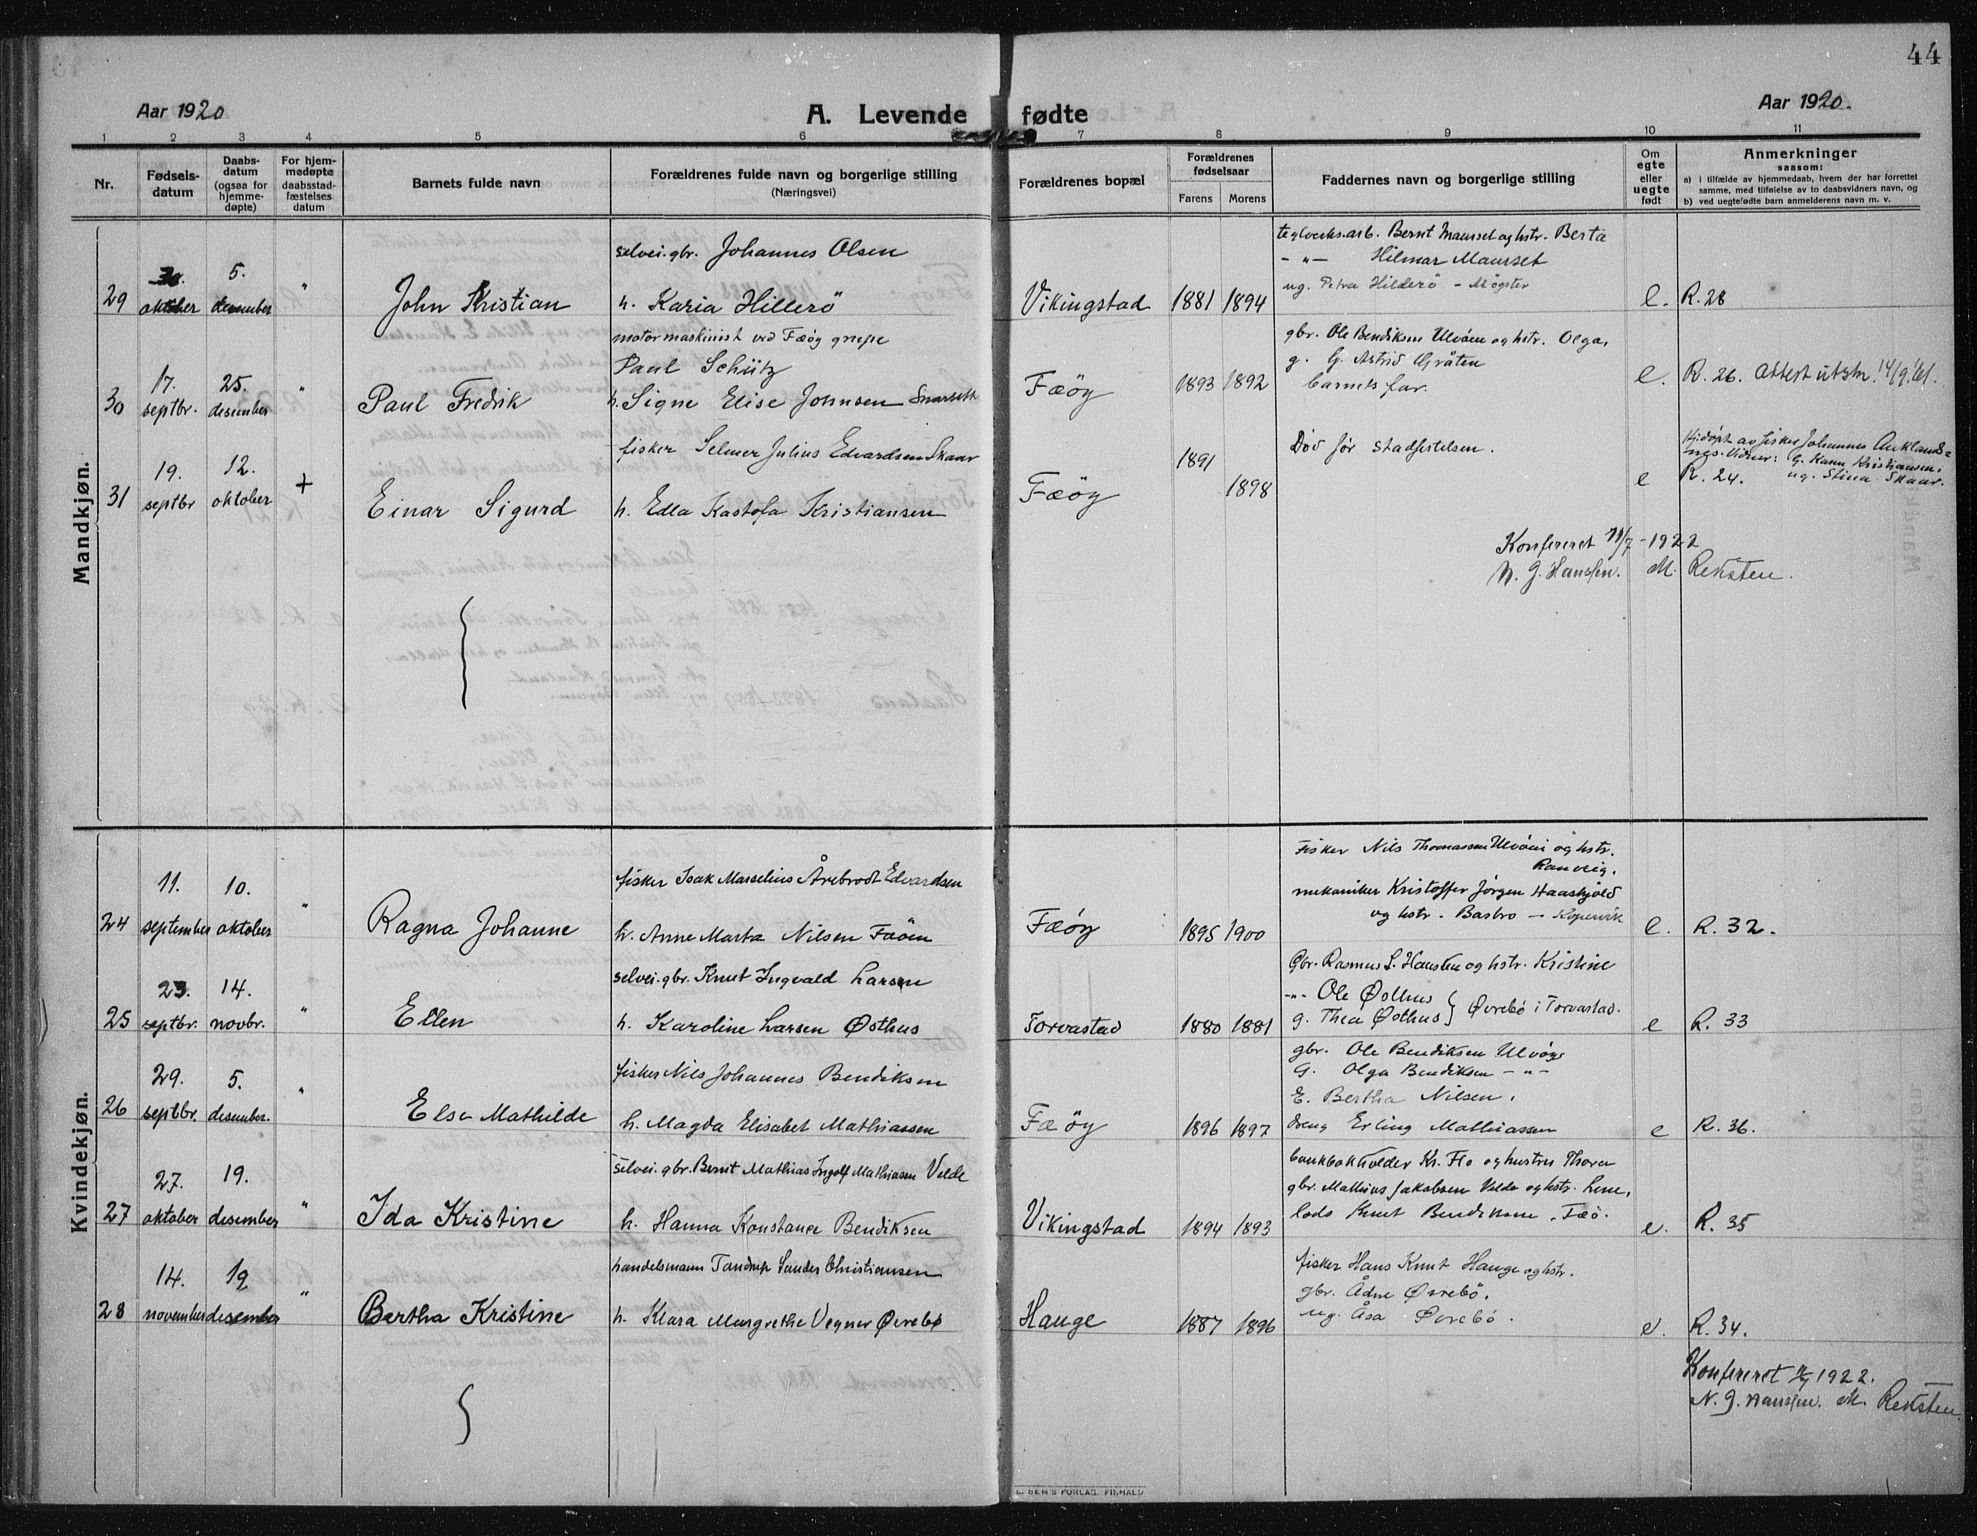 44
Aar 1920
A. Levende fødte
Aar 1920.
1 2 3 4 5 6 7 8 9 10 11
Nr.
Fødsels-
datum
Daabs-
datum
(ogsaa for
hjemme-
døpte)
For hjem-
medøpte
daabsstad-
fæstelses
datum
Barnets fulde navn
Forældrenes fulde navn og borgerlige stilling
(Næringsvei)
Forældrenes bopæl
Forældrenes
fødselsaar
Farens Morens
Faddernes navn og borgerlige stilling
Om
egte
eller
uegte
født
Anmerkninger
saasom:
a) i tilfælde av hjemmedaab, hvem der har forrettet
samme, med tilføielse av to daabsvidners navn, og
b) ved uegtefødte barn anmelderens navn m. v.
Mandkjøn.
selvei. gbr. Johannes Olsen
teglverks.arb. Bernt Maurset og hstr. Berta
30. 5.
- " - Hilmar Maurset
29 oktober desember " John Kristian h. Karia Hillerö Vikingstad 1881 1894 ug. Petra Hilderö - Mögster e. R. 28
motormaskinist ved Fæøy grupe
gbr. Ole Bendiksen Ulvöen og hstr. Olga,
Paul Schütz
g. G. Astrid Gråten
17. 25.
30 septbr. desember " Paul Fredrik h. Signe Elise Johnsen Snarseth Fæøy 1893 1892 barnets far. e. R. 26. Attest utstr. 14/9.61.
fisker Selmer Julius Edvardsen Skaar
1891
Död för stadfestelsen.
Hjdöpt av fisker Johannes Auklands-
19. 12.
Vidner: G. Karen Kristiansen.
31 septbr oktober + Einar Sigurd h. Edla Kastofa Kristiansen Fæøy 1898 e R. 24. ug. Stina Skaar.
Konfereret 11/7 - 1922
N. J. Hanssen. M. Reksten.
Kvindekjøn.
fisker Isak Marselius Årebrodt Edvardsen
Fisker Nils Thomassen Ulvöen og hstr.
Ranveig.
11. 10.
mekaniker Kristoffer Jörgen Haaskjold
24 september oktober " Ragna Johanne h. Anne Marta Nilsen Faöen Fæøy 1895 1900 og hstr. Basbro - Kopervik e. R. 32.
selvei. gbr. Knut Ingvald Larsen
Gbr. Rasmus S. Hausken og hstr. Kristine
23. 14.
-"- Ole Østhus
25 septbr. novbr. " Ellen h. Karoline Larsen Østhus Torvastad 1880 1881 g. Thea Østhus } Øvrebö i Torvastad. e R. 33
fisker Nils Johannes Bendiksen
gbr. Ole Bendiksen Ulvöy
G. Olga Bendiksen - " -
29. 5.
E. Bertha Nilsen.
26 septbr. desember. " Else Mathilde h. Magda Elisabet Mathiassen Fæøy 1896 1897 dreng Erling Mathiassen e R. 36.
selvei. gbr. Bernt Mathias Ingolf Mathiassen Velde
bankbokholder Kr. Flo og hustru Thora
27. 19.
gbr. Mathius Jakobsen Velde og hstr. Lene,
27 oktober desember " Ida Kristine h. Hanna Konstanse Bendiksen Vikingstad 1894 1893 lods Knut Bendiksen. Fæö. e. R. 35
handelsmann Tandrup Sander Christiansen
fisker Hans Knut Hauge og hstr.
14. 19
gbr. Ådne Øvrebö.
28 november desember " Bertha Kristine h. Klara Margrethe Vegner Øvrebø Hauge 1887 1896 ug. Åsa Øvrebö. e. R. 34.
Konfereret 1922.
N. J. Hanssen. M. Reksten.
SEM'S FORLAG. FR.HALD